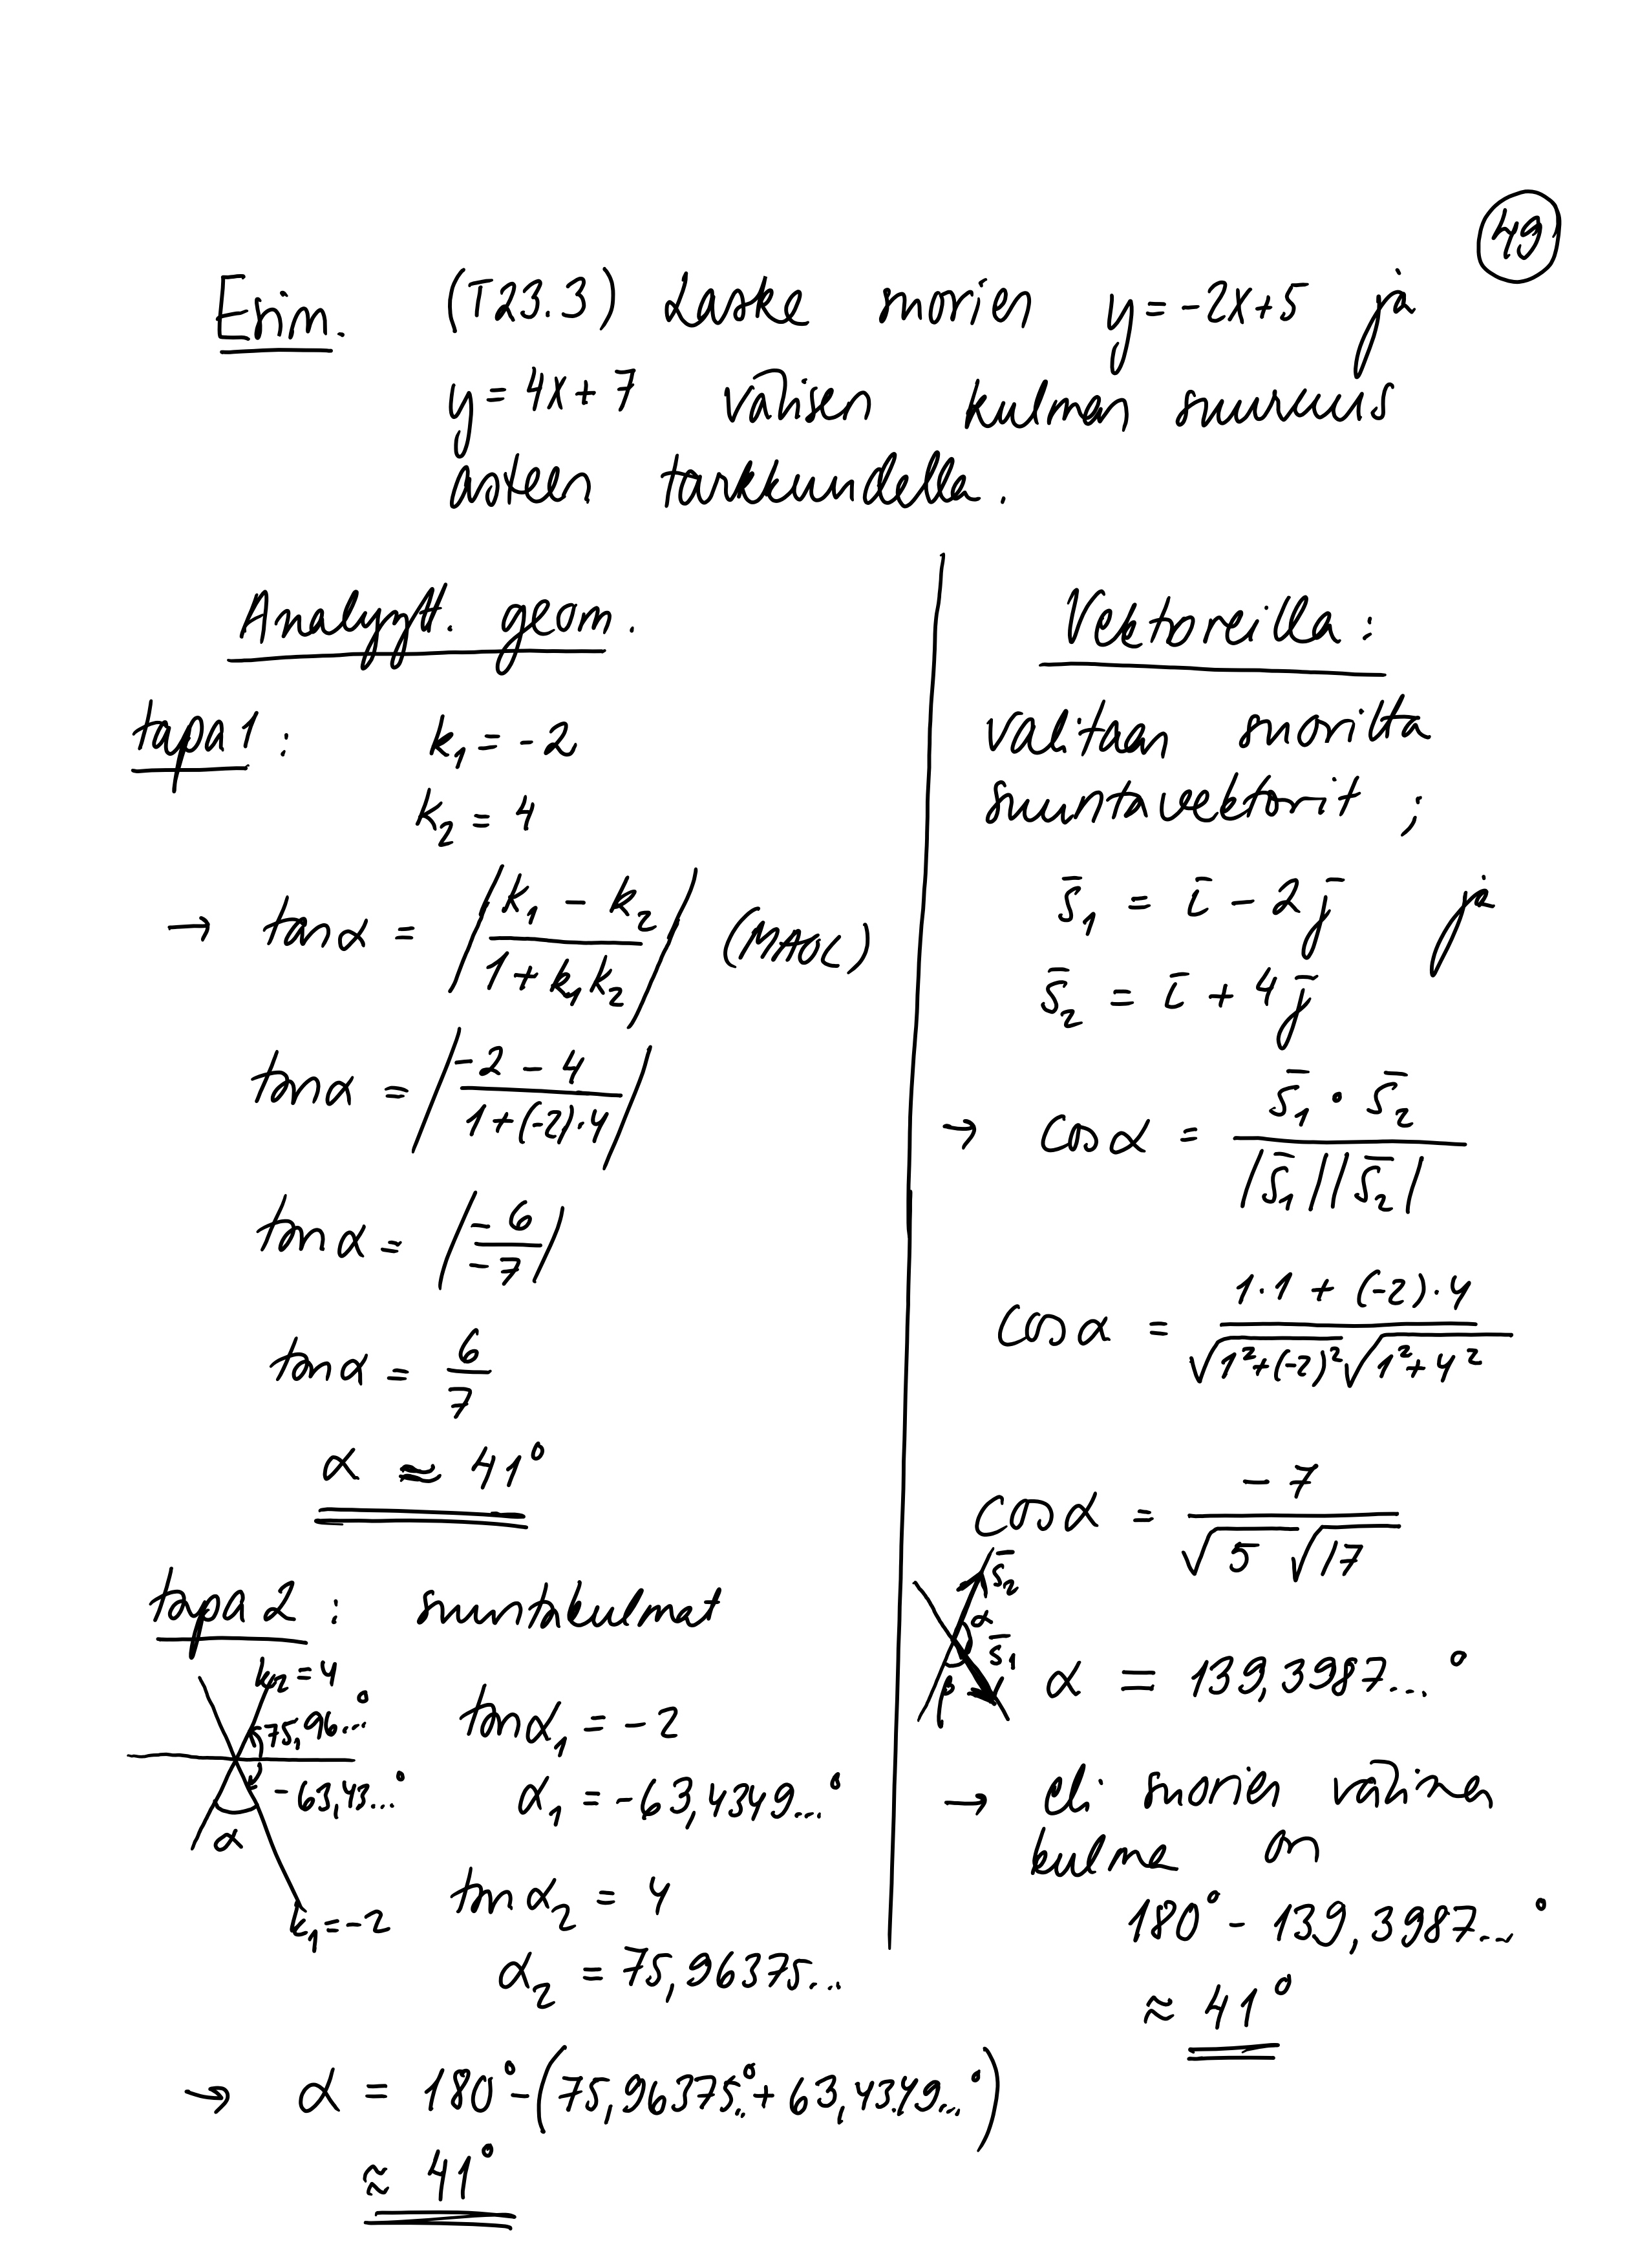 49
Esim. (T23.3) Laske suorien y = -2x+5 ja
y = 4x + 7 välisen kulman suuruus
asteen tarkkuudella.
Analyyt. geom.
tapa 1 : k₁ = -2
k₂ = 4
→ tan α = |(k₁ - k₂)/(1 + k₁k₂)| (MAOL)
tan α = |(-2 - 4)/(1+(-2)·4)|
tan α = |-6/-7|
tan α = 6/7
α ≈ 41°
tapa 2 : suuntakulmat
k₂ = 4
75,96...°
-63,43...°
α
k₁ = -2
tan α₁ = -2
α₁ = -63,4349...°
tan α₂ = 4
α₂ = 75,96375...
→ α = 180° - (75,96375..° + 63,4349...°)
≈ 41°
Vektoreilla :
valitaan suorilta
suuntavektorit ;
s̄₁ = ī - 2j̄ ja
s̄₂ = ī + 4j̄
→ cos α = (s̄₁ · s̄₂)/(|s̄₁||s̄₂|)
cos α = (1·1 + (-2)·4)/(√(1²+(-2)²) √(1²+4²))
cos α = -7/(√5 √17)
s̄₂
α
s̄₁
β
α = 139,3987...°
→ eli suorien välinen
kulma on
180° - 139,3987...°
≈ 41°